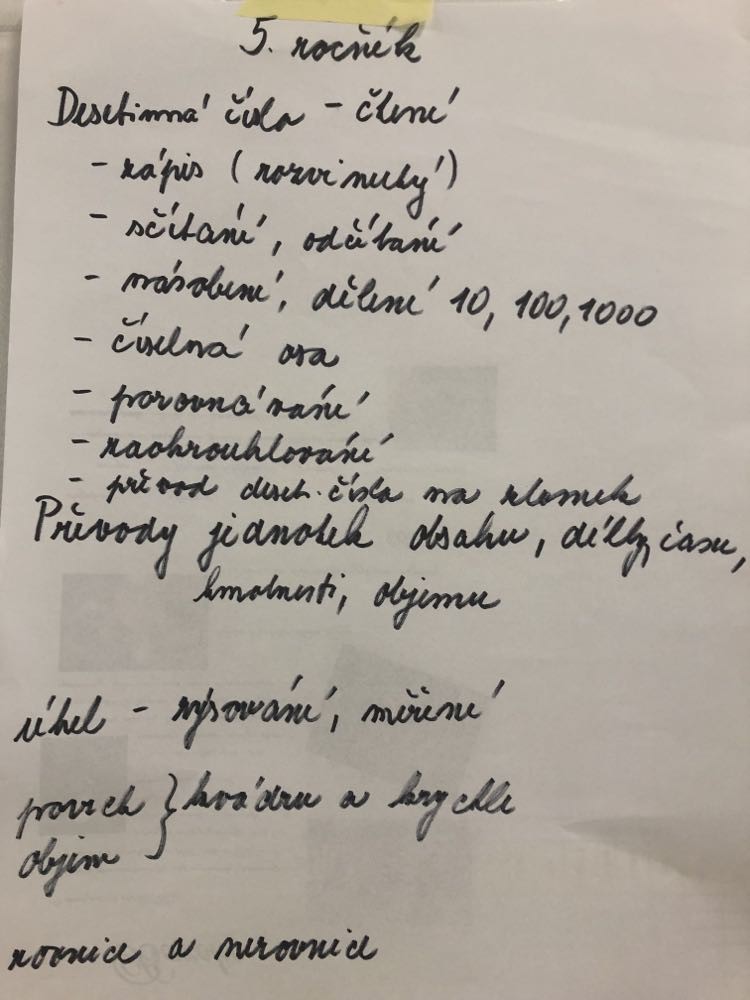 5. ročník
Desetinná čísla - čtení
- zápis (rozvinutý)
- sčítání, odčítání
- násobení, dělení 10, 100, 1000
- číselná osa
- porovnávání
- zaokrouhlování
- převod deset. čísla na zlomek
Převody jednotek obsahu, délky, času,
hmotnosti, objemu
úhel - rýsování, měření
povrch } kvádru a krychle
objem
rovnice a nerovnice